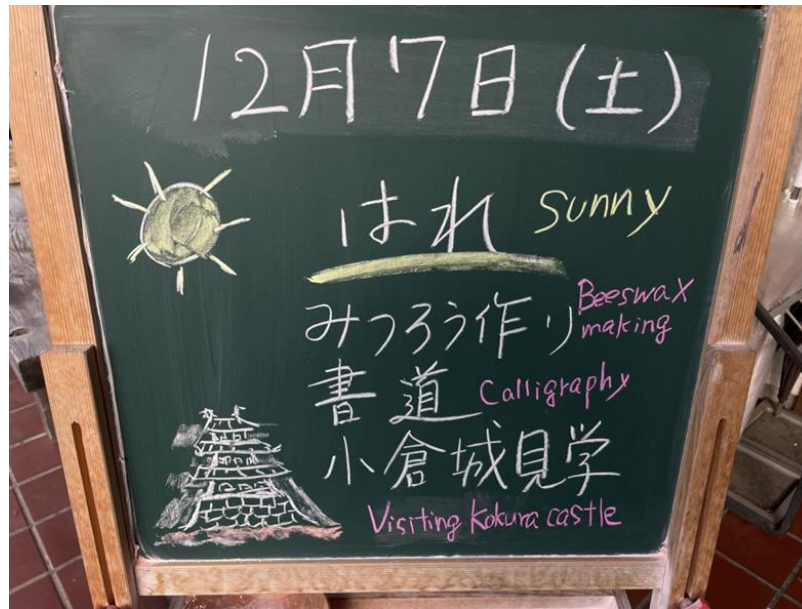 12月7日(土)
はれ sunny
みつろう作り Beeswax making
書道 Calligraphy
小倉城見学
Visiting Kokura castle